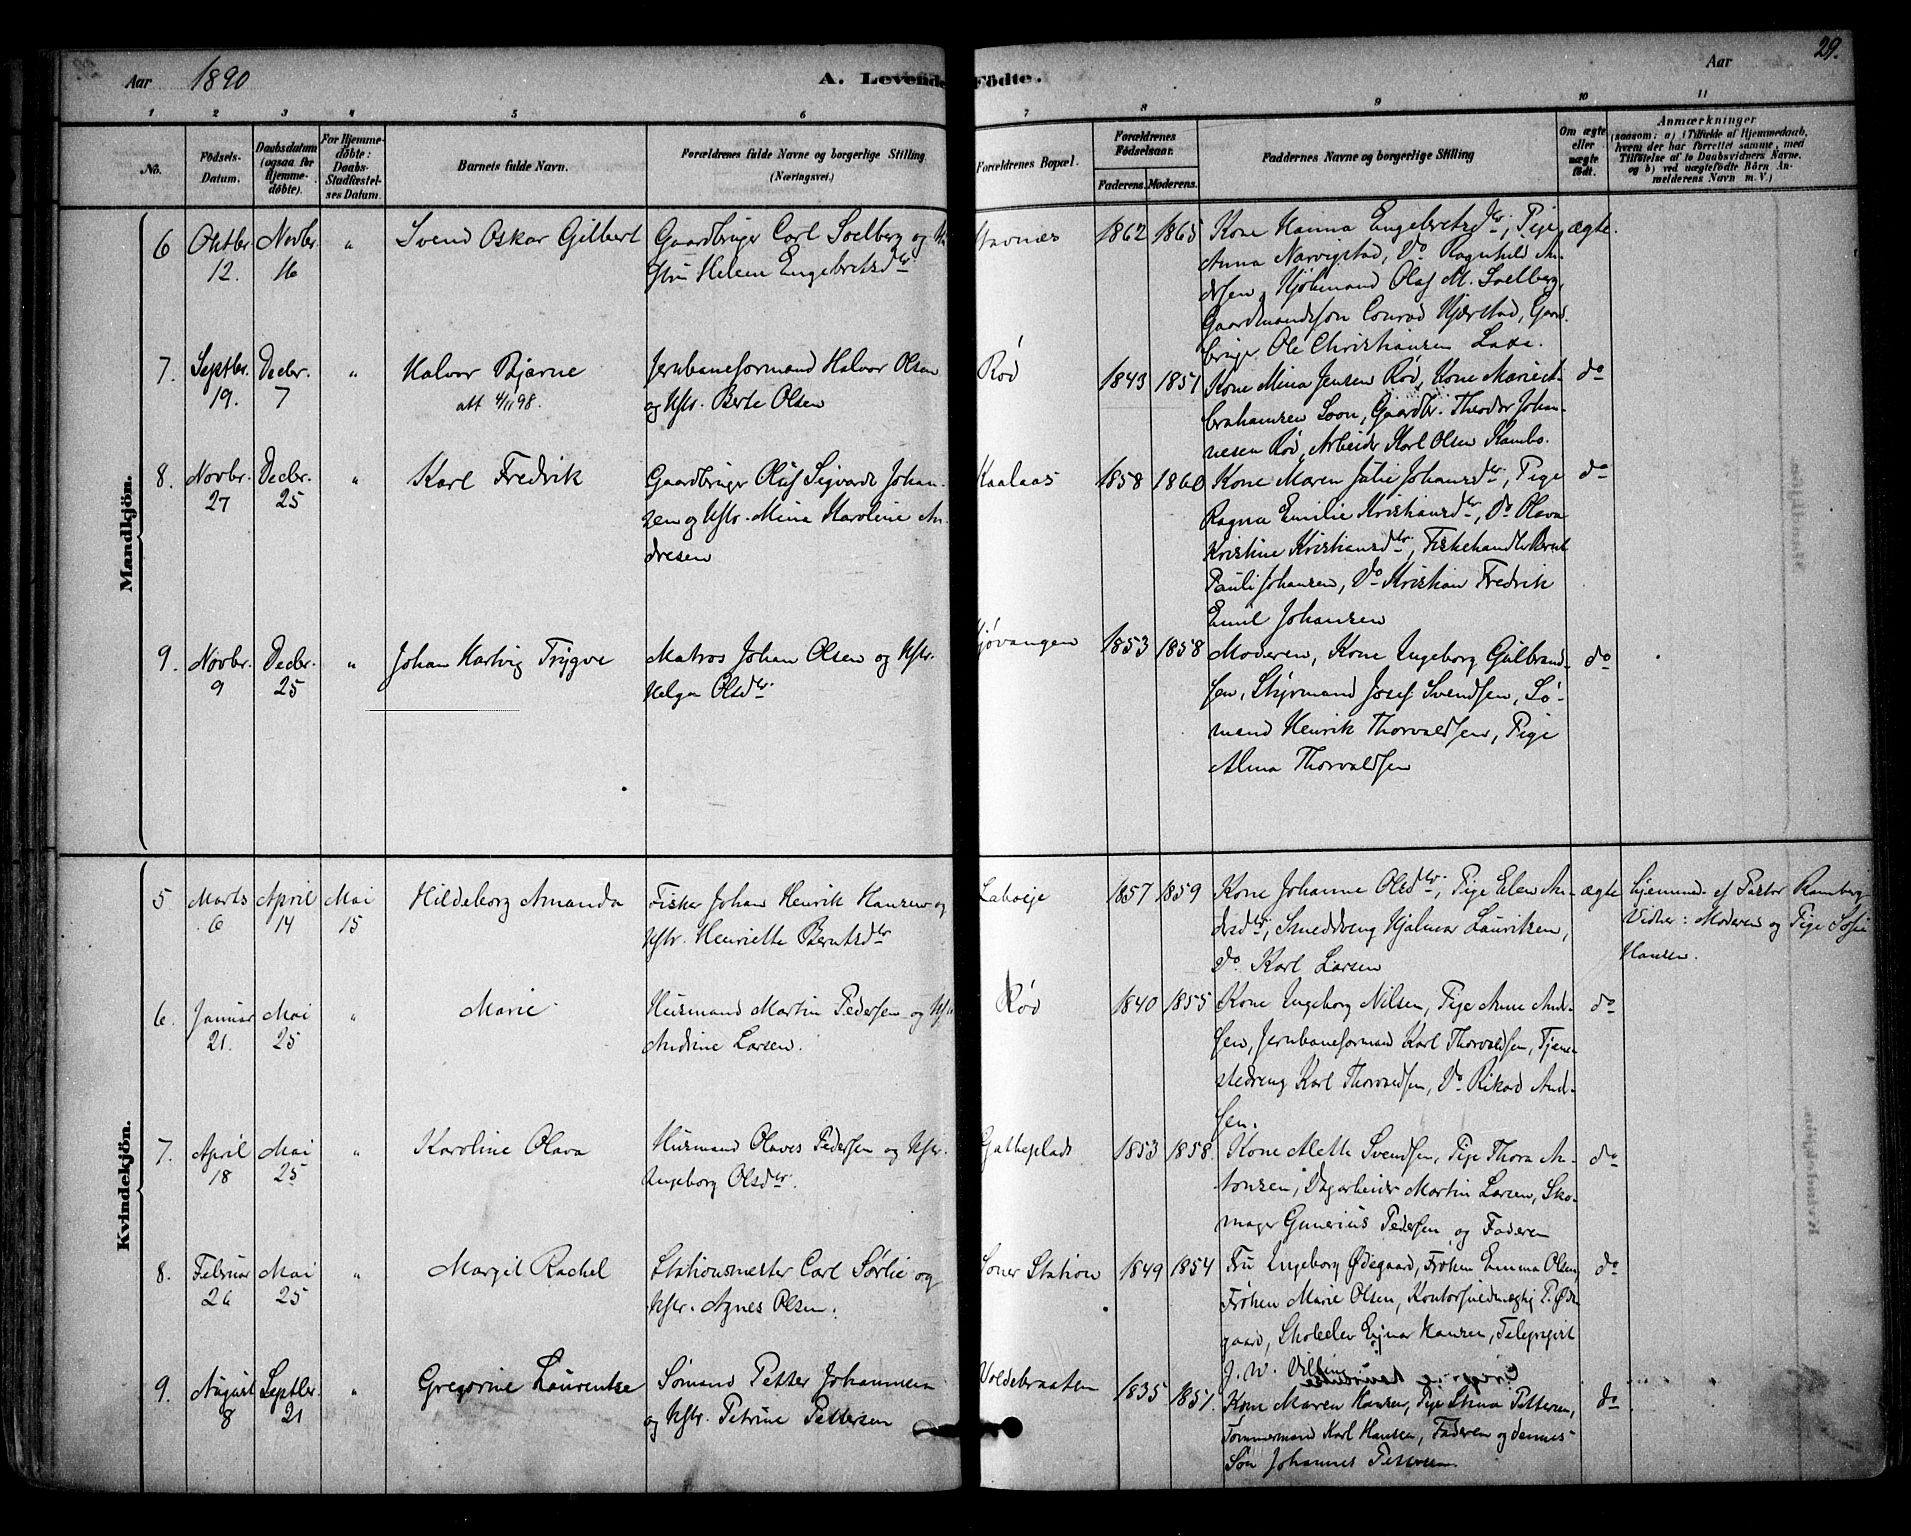 Aar 1890 A. Levende Födte. Aar 29.
1 2 3 4 5 6 7 8 9 10 11
No.
Födsels-Datum.
Daabsdatum (ogsaa for Hjemme-döbte).
For Hjemme-döbte: Daabs-Stadfæstel-ses Datum.
Barnets fulde Navn.
Forældrenes fulde Navne og borgerlige Stilling (Næringsvei.)
Forældrenes Bopæl.
Forældrenes Födselsaar.
Faderens. Moderens.
Faddernes Navne og borgerlige Stilling
Om ægte eller uægte födt.
Anmærkninger
(saasom: a) i Tilfælde af Hjemmedaab,
hvem der har forrettet samme, med
Tilföielse af to Daabsvidners Navne,
og b) ved uægtefödte Börn An-
melderens Navn m. V.)
Mandkjön.
6 Oktbr 12. Novbr. 16 "
Svend Oskar Gilbert
Gaardbruger Carl Soelberg og
Hstru Helene Engebretsdtr
1862 1865
Kone Hanna Engebretsdtr, Pige
Anna Narvigstad, Do Ragnhild An-
dersen, Kjöbmand Olaf M. Soelberg,
Gaardmandssøn Conrad Kjærstad, Gaard-
bruger Ole Christiansen Laxe.
ægte.
7. Septbr. 19. Decbr. 7 "
Halvor Bjarne
att 4/11 98.
Jernbaneformand Halvor Olsen
og Hstr. Berte Olsen
Rød
1843 1851
Kone Mina Jensen Rød, Kone Marie A-
brahamsen Soon, Gaardbr. Theodor Johan-
nesen Rød, Arbeider Karl Olsen Kambo.
do
8. Novbr. 27 Decbr. 25 "
Karl Fredrik
Gaardbruger Oluf Sigvard Johan-
sen og Hstr. Mina Karoline An-
dresen
Kaalaas
1858 1860
Kone Maren Julie Johansdtr, Pige
Ragna Emilie Kristiansdtr, Do Olava
Kristine Kristiansdtr, Fiskehandler Bernt
Pauli Johansen, Do Kristian Fredrik
Emil Johansen
do
9. Novbr. 9 Decbr. 25 "
Johan Hartvig Trygve
Matros Johan Olsen og Hstr.
Helga Olsdtr
Kjøvangen
1853 1858
Moderen, Kone Ingeborg Gulbrand-
sen, Styrmand Josef Svendsen, Sø-
mand Henrik Thorvaldsen, Pige
Alma Thorvaldsen
do
Kvindekjön.
5 Marts 6 April 14 Mai 15
Hildeborg Amanda
Fisker Johan Henrik Hansen og
Hstr. Henriette Berntsdtr
Labeie
1857 1859
Kone Johanne Olsdtr, Pige Elen An-
drsdtr, Smeddreng Hjalmar Lauritsen,
Do. Karl Larsen
ægte
hjemmed. af Pastor Ramberg
Vidner: Moderen og Pige Sofie
Hansen.
6. Januar 21. Mai 25 "
Marie
Husmand Martin Pedersen og Hstr
Andrine Larsen.
Rød
1840 1855
Kone Ingeborg Nilsen, Pige Anne And-
sen, Jernbaneformand Karl Thorvaldsen, Tjene-
stedreng Karl Thorvaldsen, Do Rikard And-
sen.
do
7. April 18 Mai 25 "
Karoline Olava
Husmand Olaves Pedersen og Hstr.
Ingeborg Olsdtr.
1853 1858.
Kone Alette Svendsen, Pige Thora An-
tonsen, Dagarbeider Martin Larsen, Sko-
mager Gunerius Pedersen og Faderen
do
8. Februar 26 Mai 25 "
Margit Rachel
Stationsmester Carl Sørlie og
Hstr. Agnes Olsen.
Soner Station
1849 1854
Fru Ingeborg Ødegaard, Frøken Emma Olsen,
Frøken Marie Olsen, Kontorfuldmægtig P. Øde-
gaard, Skoleelev Ejnar Hansen, Telegrafist
J. W.
do
9. August 8 Septbr. 21 "
Gregorine Laurentze
Sømand Petter Johannesen
og Hstr. Petrine Pettersen
Voldebraaten
1835 1851.
Kone Maren Hansen, Pige Stina Pettersen,
Tømmermand Karl Hansen, Faderen og dennes
Søn Johannes Pettersen
do